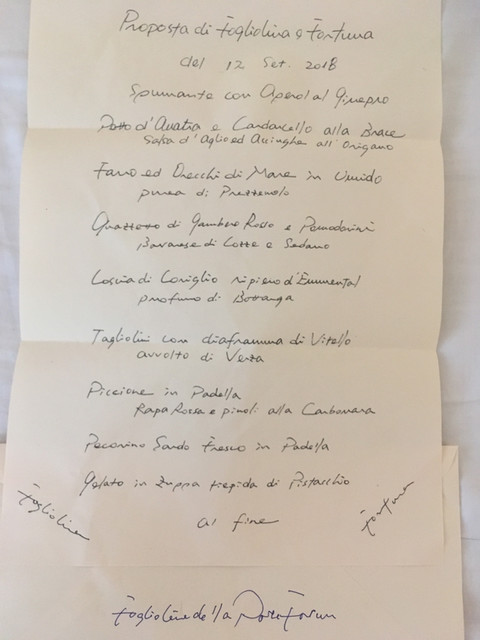 Proposta di Fogliolina e Fortuna
del 12 Set. 2018
Spumante con Aperol al Ginepro
Petto d'Anatra e Cardoncello alla Brace
Salsa d'Aglio ed Acciughe all'Origano
Farro ed Orecchi di Mare in Umido
purea di Prezzemolo
Guazzetto di Gambero Rosso e Pomodorini
Bavarese di Latte e Sedano
Coscia di Coniglio ripieno d'Emmental
profumo di Bottarga
Tagliolini con diaframma di Vitello
avvolto di Verza
Piccione in Padella
Rapa Rossa e pinoli alla Carbonara
Pecorino Sardo Fresco in Padella
Gelato in Zuppa tiepida di Pistacchio
al fine
Fogliolina
Fortuna
Fogliolina della